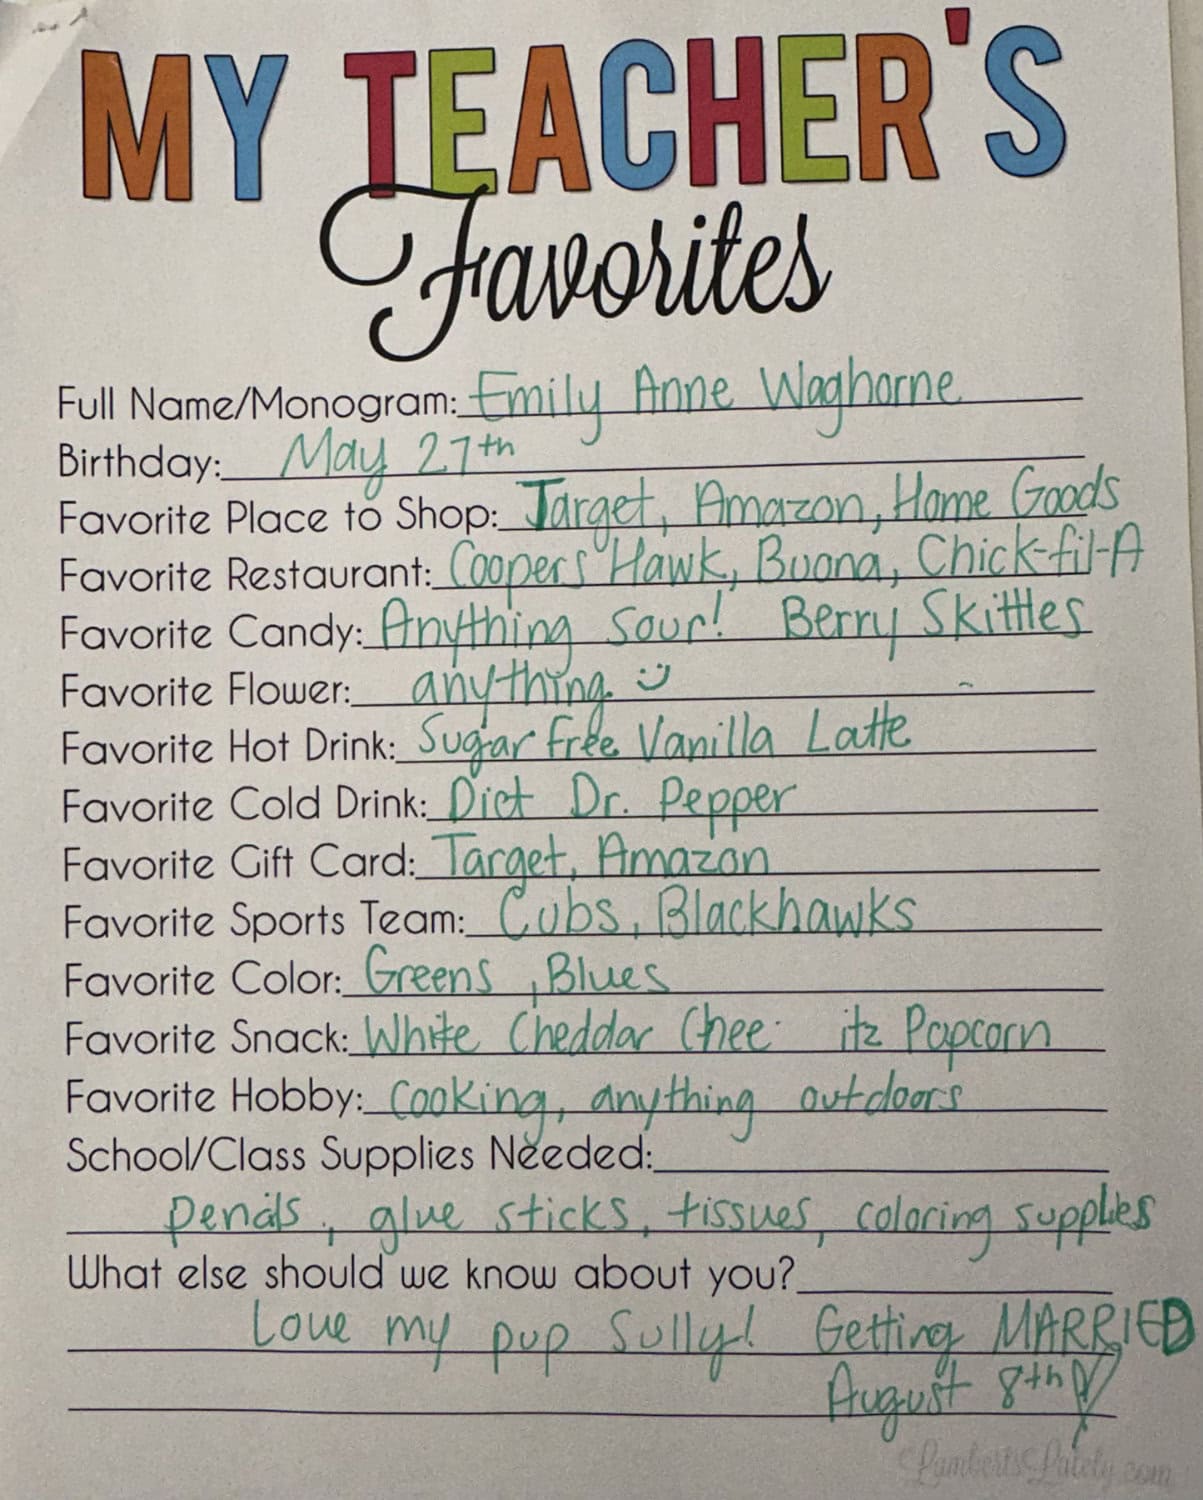 MY TEACHER'S
Favorites
Full Name/Monogram: Emily Anne Waghorne
Birthday: May 27th
Favorite Place to Shop: Target, Amazon, Home Goods
Favorite Restaurant: Coopers Hawk, Buona, Chick-fil-A
Favorite Candy: Anything Sour! Berry Skittles
Favorite Flower: anything
Favorite Hot Drink: Sugar free Vanilla Latte
Favorite Cold Drink: Diet Dr. Pepper
Favorite Gift Card: Target, Amazon
Favorite Sports Team: Cubs, Blackhawks
Favorite Color: Greens, Blues
Favorite Snack: White Cheddar Chee itz Popcorn
Favorite Hobby: Cooking, anything outdoors
School/Class Supplies Needed:
pencils, glue sticks, tissues, coloring supplies
What else should we know about you?
Love my pup Sully! Getting MARRIED
August 8th
LambertsLately.com